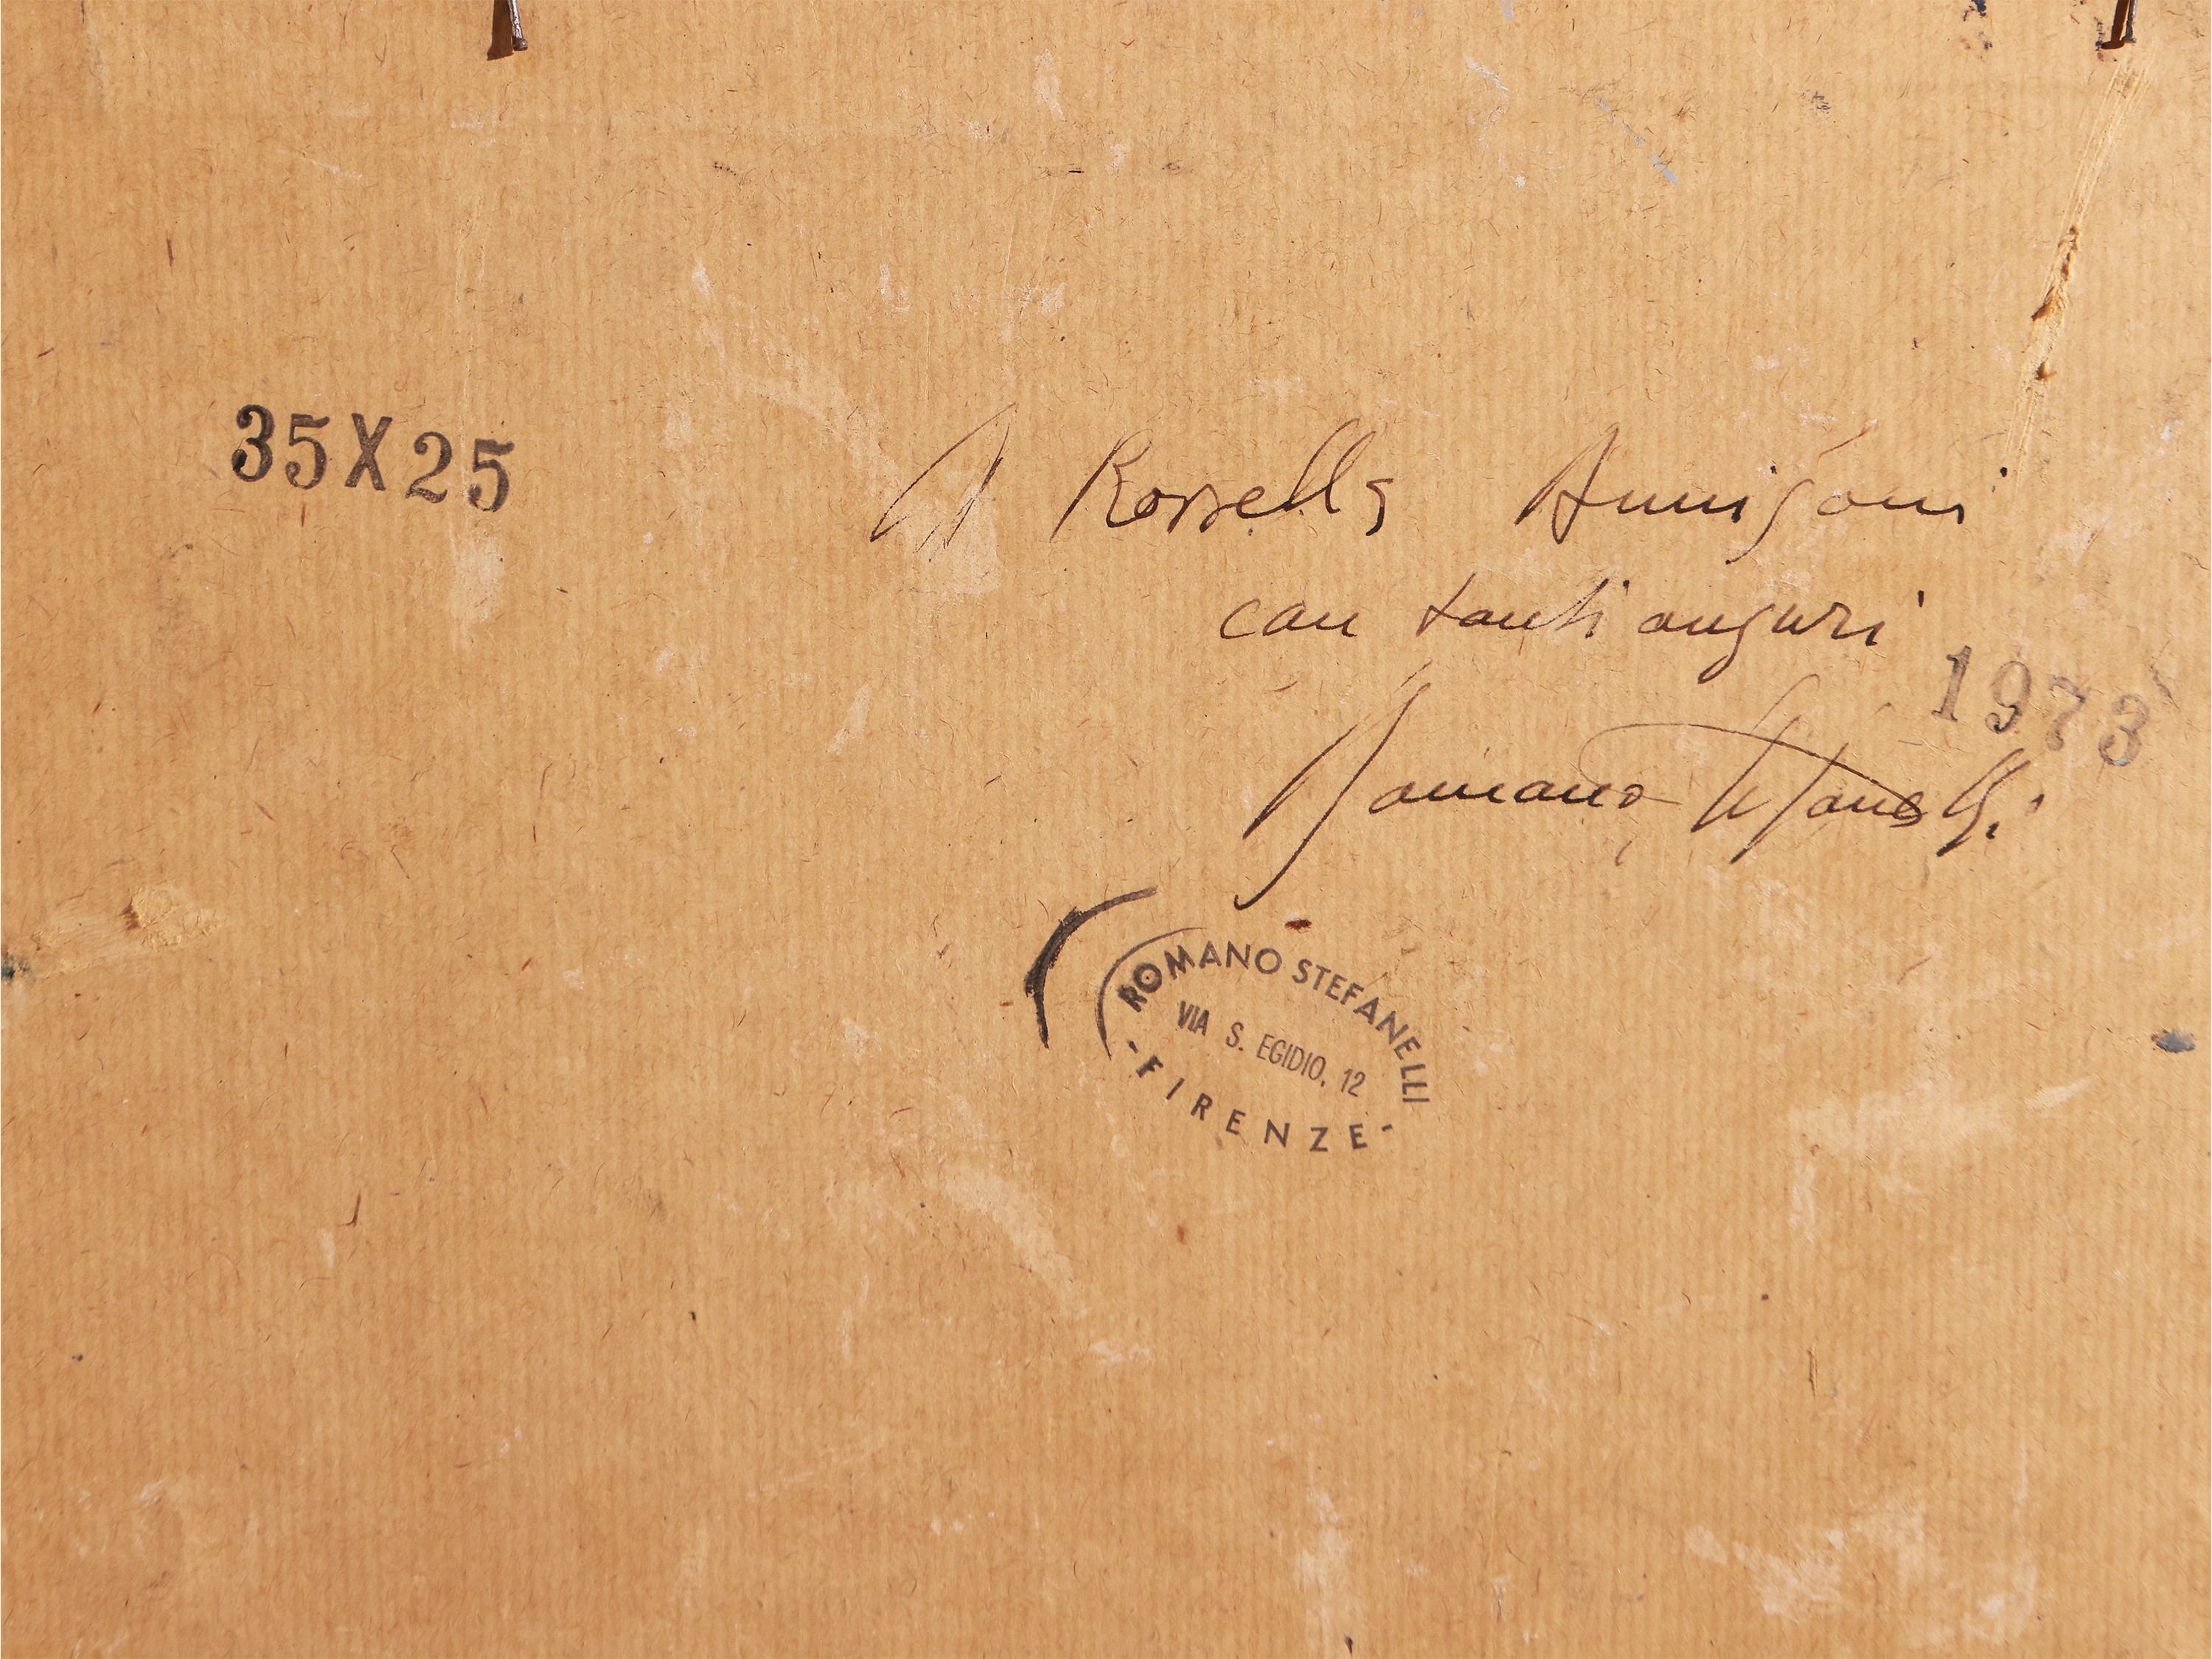 35X25
A Rossella Annigoni
con tanti auguri
1973
Romano Stefanelli
ROMANO STEFANELLI
VIA S. EGIDIO, 12
-FIRENZE-